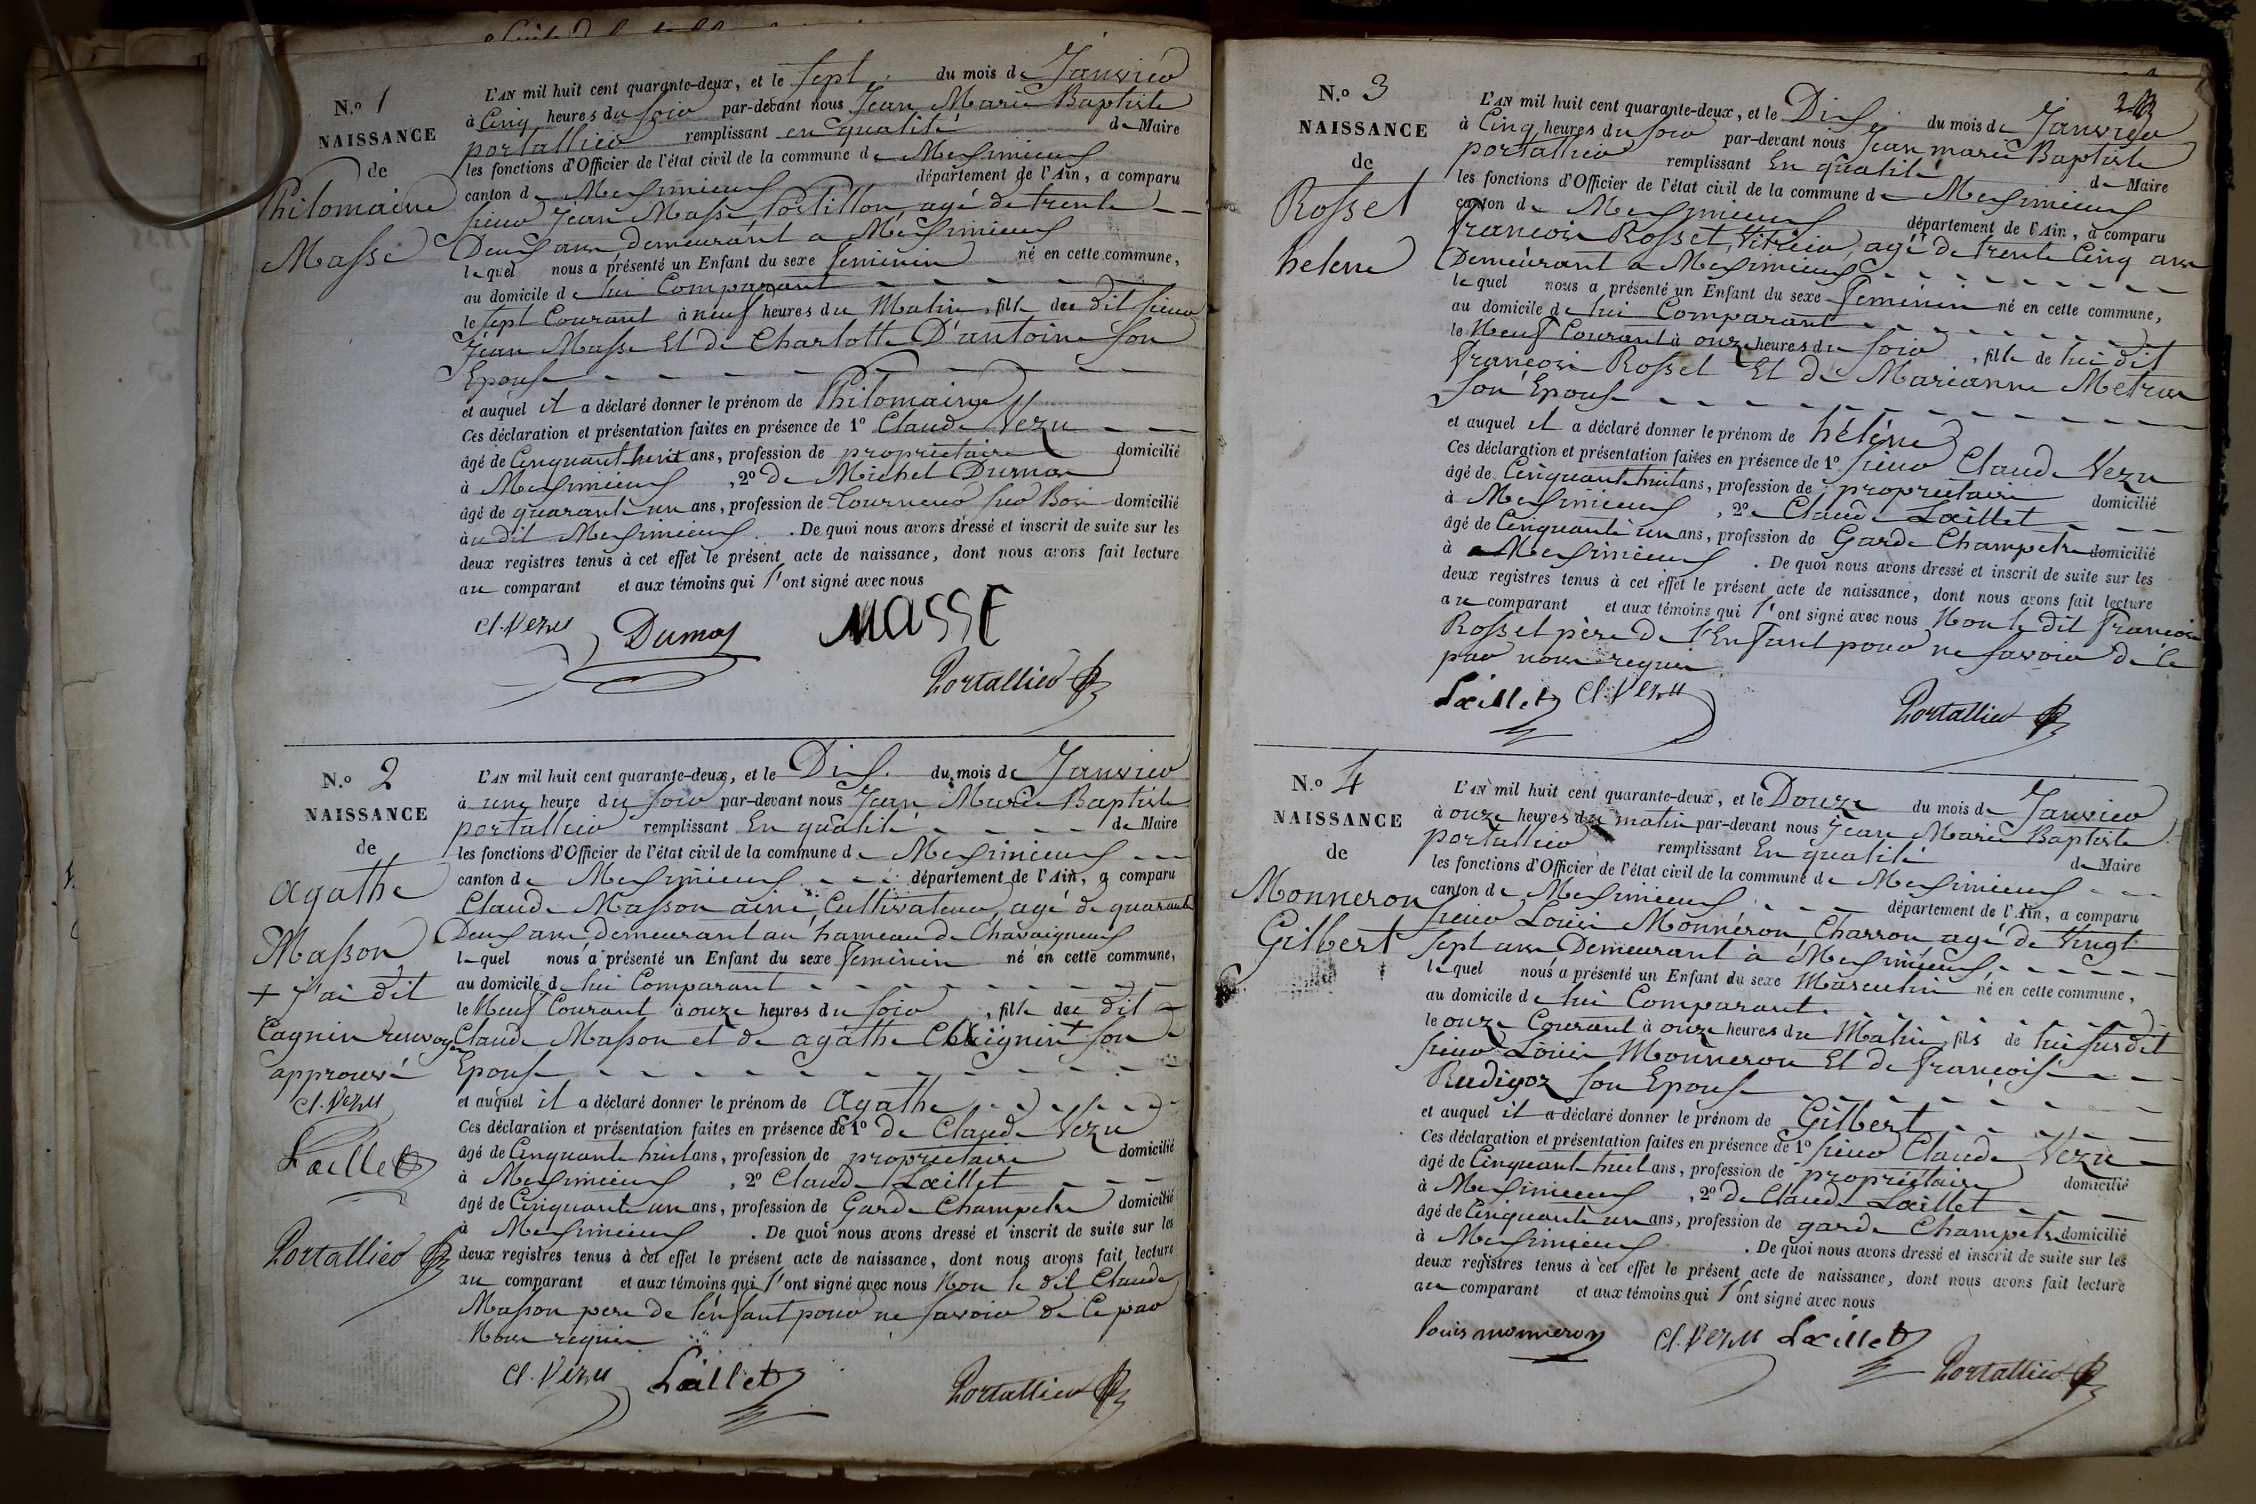 N.º 1
NAISSANCE
de
Philomaine
Masse
L'AN mil huit cent quarante-deux, et le sept du mois de Janvier
à Cinq heures du soir par-devant nous Jean Marie Baptiste
portallier remplissant en qualité de Maire
les fonctions d'Officier de l'état civil de la commune de Meximieux
canton de Meximieux département de l'Ain, a comparu
sieur Jean Masse, Postillon, agé de trente
Deux ans, demeurant a Méximieux
lequel nous a présenté un Enfant du sexe feminin né en cette commune,
au domicile de lui Comparant
le sept Courant à neuf heures du Matin, fille du dit sieur
Jean Masse Et de Charlotte D'antoine son
Epouse
et auquel il a déclaré donner le prénom de Philomaine
Ces déclaration et présentation faites en présence de 1º Claude Vezu
âgé de Cinquante huit ans, profession de propriétaire domicilié
à Meximieux, 2º de Michel Dumas
âgé de quarante un ans, profession de Tourneur sur Bois domicilié
au dit Meximieux. De quoi nous avons dressé et inscrit de suite sur les
deux registres tenus à cet effet le présent acte de naissance, dont nous avons fait lecture
au comparant et aux témoins qui l'ont signé avec nous
Cl. Vezu Dumas MASSE
Portallier
N.º 2
NAISSANCE
de
agathe
Masson
+ J'ai dit
Cagnin renvoyer
approuvé
Cl. Vezu
Lœillet
Portallier
L'AN mil huit cent quarante-deux, et le Dix du mois de Janvier
à une heure du soir par-devant nous Jean Marie Baptiste
portallier remplissant En qualité de Maire
les fonctions d'Officier de l'état civil de la commune de Meximieux
canton de Meximieux département de l'Ain, a comparu
Claude Masson ainé, Cultivateur, agé de quarante
Deux ans, demeurant au hameau de Chavaigneux
lequel nous a présenté un Enfant du sexe feminin né en cette commune,
au domicile de lui Comparant
le Neuf Courant à onze heures du soir, fille du dit
Claude Masson et de agathe + son
Epouse
et auquel il a déclaré donner le prénom de Agathe
Ces déclaration et présentation faites en présence de 1º de Claude Vezu
âgé de Cinquante huit ans, profession de propriétaire domicilié
à Meximieux, 2º Claude Lœillet
âgé de Cinquante un ans, profession de Garde Champetre domicilié
à Meximieux. De quoi nous avons dressé et inscrit de suite sur les
deux registres tenus à cet effet le présent acte de naissance, dont nous avons fait lecture
au comparant et aux témoins qui l'ont signé avec nous Non le dit Claude
Masson pere de l'énfant pour ne savoir de Ce par
Nous requis
Cl. Vezu Lœillet Portallier
N.º 3
NAISSANCE
de
Rosset
helene
L'AN mil huit cent quarante-deux, et le Dix du mois de Janvier
à Cinq heures du soir par-devant nous Jean marie Baptiste
portallier remplissant En qualité de Maire
les fonctions d'Officier de l'état civil de la commune de Meximieux
canton de Meximieux département de l'Ain, a comparu
francois Rosset, Vitrier, agé de trente Cinq ans
Demeurant a Meximieux
lequel nous a présenté un Enfant du sexe feminin né en cette commune,
au domicile de lui Comparant
le Neuf Courant à onze heures du soir, fille de lui dit
francois Rosset Et de Marianne Metras
son Epouse
et auquel il a déclaré donner le prénom de hélène
Ces déclaration et présentation faites en présence de 1º sieur Claude Vezu
âgé de Cinquante huit ans, profession de propriétaire domicilié
à Meximieux, 2º Claude Lœillet
âgé de Cinquante un ans, profession de Garde Champetre domicilié
à Meximieux. De quoi nous avons dressé et inscrit de suite sur les
deux registres tenus à cet effet le présent acte de naissance, dont nous avons fait lecture
au comparant et aux témoins qui l'ont signé avec nous Non le dit francois
Rosset père de l'Enfant pour ne savoir de Ce
par nous requis
Lœillet Cl. Vezu Portallier
N.º 4
NAISSANCE
de
Monneron
Gilbert
L'AN mil huit cent quarante-deux, et le Douze du mois de Janvier
à onze heures du matin par-devant nous Jean Marie Baptiste
portallier remplissant En qualité de Maire
les fonctions d'Officier de l'état civil de la commune de Meximieux
canton de Meximieux département de l'Ain, a comparu
sieur Louis Monnéron, Charron, agé de Vingt
sept ans Demeurant à Meximieux
lequel nous a présenté un Enfant du sexe Masculin né en cette commune,
au domicile de lui Comparant
le onze Courant à onze heures du Matin, fils de lui susdit
sieur Louis Monneron Et de françoise
Rudigoz son Epouse
et auquel il a déclaré donner le prénom de Gilbert
Ces déclaration et présentation faites en présence de 1º sieur Claude Vezu
âgé de Cinquante huit ans, profession de propriétaire domicilié
à Meximieux, 2º de Claude Lœillet
âgé de Cinquante un ans, profession de garde Champetre domicilié
à Meximieux. De quoi nous avons dressé et inscrit de suite sur les
deux registres tenus à cet effet le présent acte de naissance, dont nous avons fait lecture
au comparant et aux témoins qui l'ont signé avec nous
louis monneron Cl. Vezu Lœillet Portallier